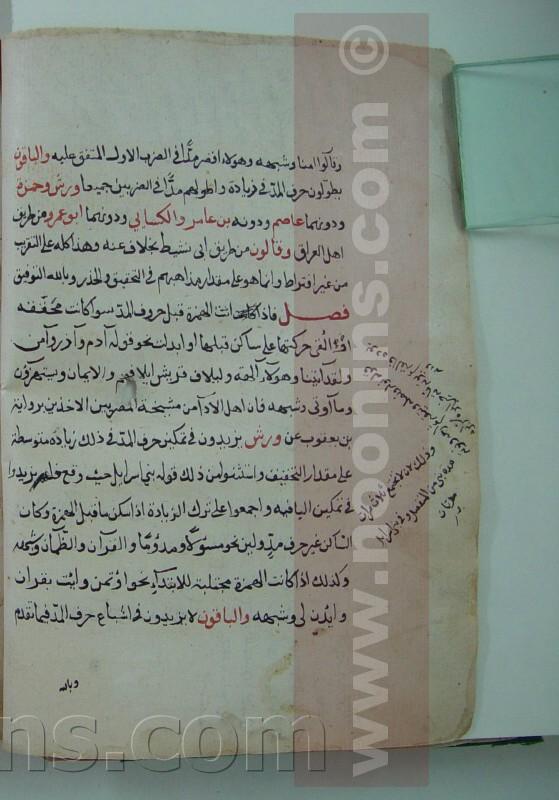 وقالوا امنا وشبهه وهولاء اقصر مدّا في الضرب الاول المتفق عليه والباقون
يطولون حرف المدّ في زيادة واطولهم مدّا في الضربين جميعا ورش وحمزة
ودونهما عاصم ودونه بن عامر والكسائي ودونهما ابو عمرو من طريق
اهل العراق وقالون من طريق ابى نشيط بخلاف عنه وهذا كله على التقريب
من غير افراط وانما هو على مقدار مذاهبهم في التحقيق والحذر وبالله التوفيق
فصل فاذا كانت الهمزة قبل حروف المدّ سوا كانت محققه
او القى حركتها على ساكن قبلها او ابدلت نحو قوله آدم وآذر وآمن
ولقد آتينا وهولاء آلهة وليلاف قريش ايلافهم والايمان ويستهزؤن
وما اوتى وشبهه فان اهل الادآ من مشيخة المصريين الاخذين برواية
بن يعقوب عن ورش يزيدون في تمكين حرف المدّ في ذلك زيادة متوسطة
على مقدار التحقيق واستثنوا من ذلك قوله بنى اسرايل حيث وقع فلم يزيدوا
في تمكين اليا فيه واجمعوا على ترك الزيادة اذا سكن ما قبل الهمزة وكان
الساكن غير حرف مدّ ولين نحو مسؤلا ومذؤما والقرآن والظمآن وشبهه
وكذلك اذا كانت الهمزة مجتلبة للابتداء نحو اؤتمن وايت بقران
وايذن لى وشبهه والباقون لا يزيدون في اشباع حرف المدّ فيما تقدم
وبالله
www.noonins.com ©
ns.com